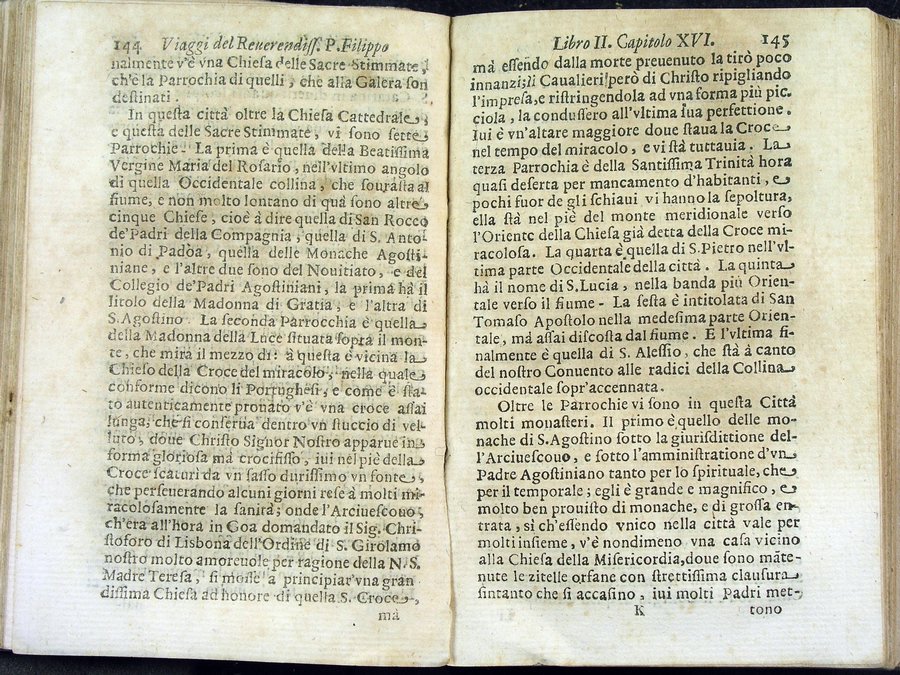 144 Viaggi del Reuerendiss. P. Filippo
nalmente v'è vna Chiesa delle Sacre Stimmate,
ch'è la Parrochia di quelli, che alla Galera son
destinati.
In questa città oltre la Chiesa Cattedrale,
e questa delle Sacre Stimmate, vi sono sette
Parrochie. La prima è quella della Beatissima
Vergine Maria del Rosario, nell'vltimo angolo
di quella Occidentale collina, che sourasta al
fiume, e non molto lontano di quà sono altre
cinque Chiese, cioè à dire quella di San Rocco
de'Padri della Compagnia, quella di S. Anto-
nio di Padoa, quella delle Monache Agosti-
niane, e l'altre due sono del Nouitiato, e del
Collegio de'Padri Agostiniani, la prima hà il
Titolo della Madonna di Gratia, e l'altra di
S.Agostino. La seconda Parrocchia è quella
della Madonna della Luce situata sopra il mon-
te, che mira il mezzo dì: à questa è vicina la
Chieso della Croce del miracolo, nella quale
conforme dicono li Portughesi, e come è sta-
to autenticamente prouato v'è vna croce assai
lunga, che si conserua dentro vn stuccio di vel-
luto, doue Christo Signor Nostro apparue in
forma gloriosa mà crocifisso, iui nel piè della
Croce scaturì da vn sasso durissimo vn fonte,
che perseuerando alcuni giorni rese à molti mi-
racolosamente la sanità; onde l'Arciuescouo,
ch'era all'hora in Goa domandato il Sig. Chri-
stoforo di Lisbona dell'Ordine di S. Girolamo
nostro molto amoreuole per ragione della N.S.
Madre Teresa, si mosse à principiar vna gran-
dissima Chiesa ad honore di quella S. Croce,
mà
Libro II. Capitolo XVI. 145
mà essendo dalla morte preuenuto la tirò poco
innanzi; il Caualieri però di Christo ripigliando
l'impresa, e ristringendola ad vna forma più pic-
ciola, la condussero all'vltima sua perfettione.
Iui è vn'altare maggiore doue staua la Croce
nel tempo del miracolo, e vi stà tuttauia. La
terza Parrochia è della Santissima Trinità hora
quasi deserta per mancamento d'habitanti, e
pochi fuor de gli schiaui vi hanno la sepoltura,
ella stà nel piè del monte meridionale verso
l'Oriente della Chiesa già detta della Croce mi-
racolosa. La quarta è quella di S.Pietro nell'vl-
tima parte Occidentale della città. La quinta
hà il nome di S.Lucia, nella banda più Orien-
tale verso il fiume. La sesta è intitolata di San
Tomaso Apostolo nella medesima parte Orien-
tale, mà assai discosta dal fiume. E l'vltima fi-
nalmente è quella di S. Alessio, che stà à canto
del nostro Conuento alle radici della Collina
occidentale sopr'accennata.
Oltre le Parrochie vi sono in questa Città
molti monasteri. Il primo è quello delle mo-
nache di S.Agostino sotto la giurisdittione del-
l'Arciuescouo, e sotto l'amministratione d'vn
Padre Agostiniano tanto per lo spirituale, che
per il temporale; egli è grande e magnifico, e
molto ben prouisto di monache, e di grossa en-
trata, sì ch'essendo vnico nella città vale per
molti insieme, v'è nondimeno vna casa vicino
alla Chiesa della Misericordia, doue sono māte-
nute le zitelle orfane con strettissima clausura
sintanto che si accasino, iui molti Padri met-
K tono